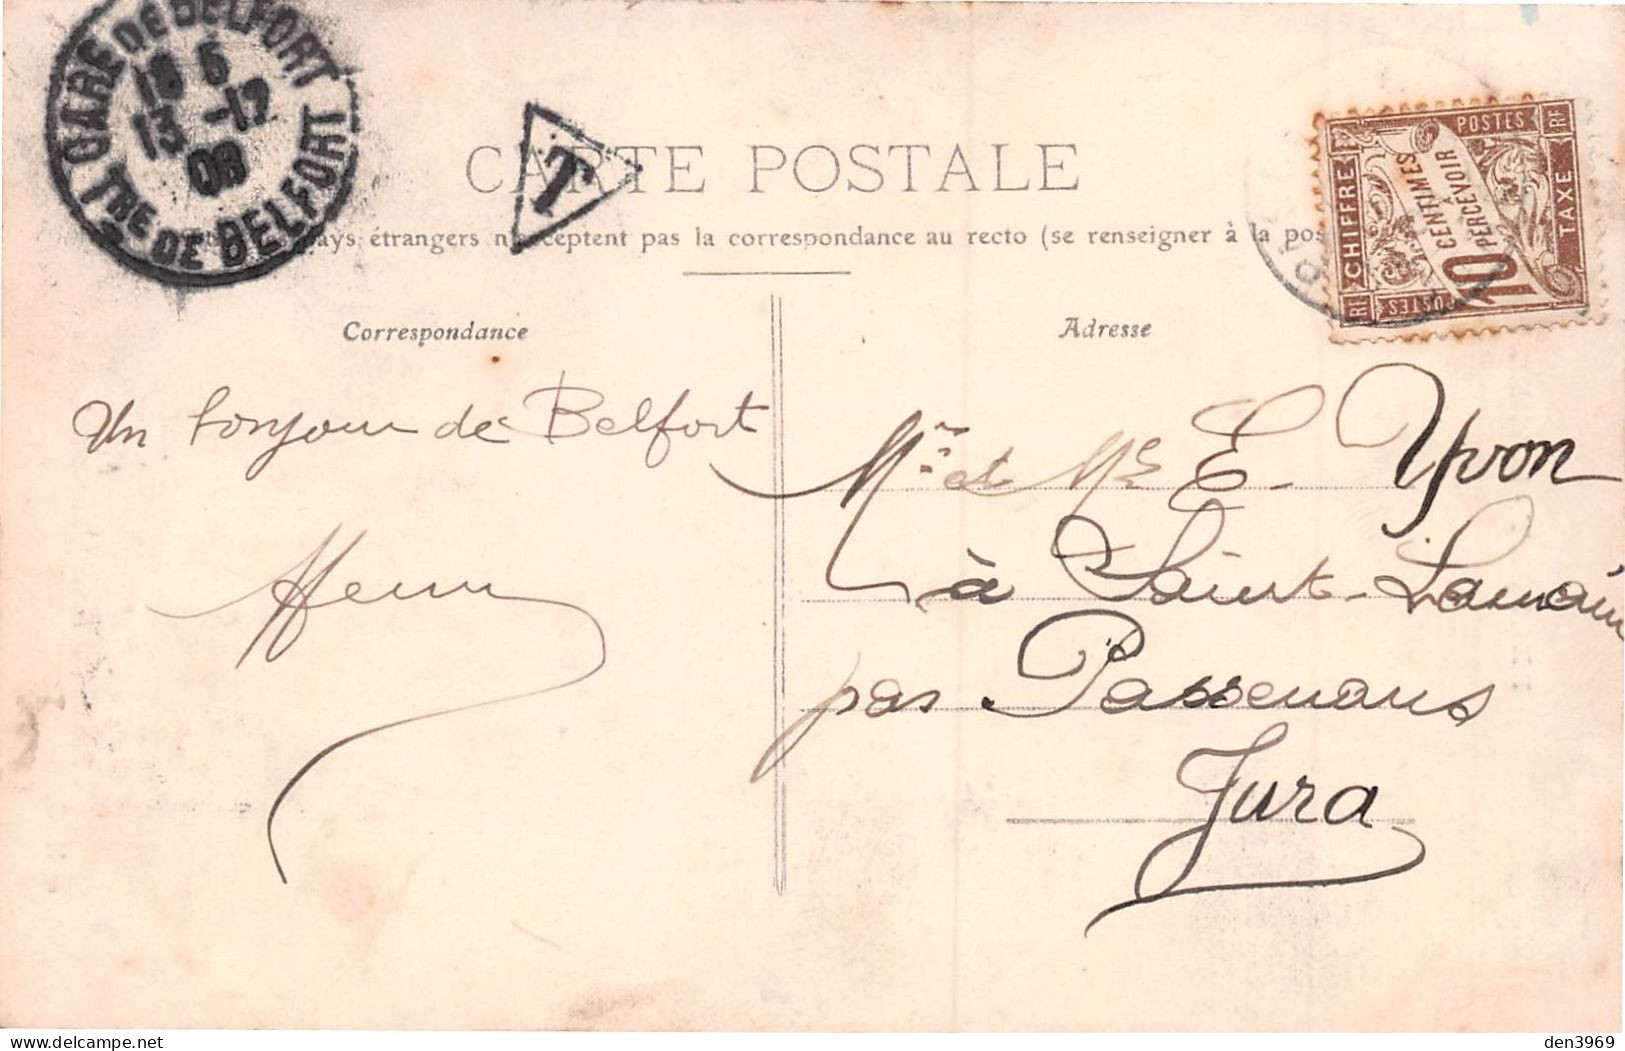 GARE DE BELFORT
18 5
13 -12
08
TRE DE BELFORT
T
CARTE POSTALE
pays étrangers n'acceptent pas la correspondance au recto (se renseigner à la pos
POSTES
RF
CHIFFRE
TAXE
10 CENTIMES
A
PERCEVOIR
RF
POSTES
Correspondance
Adresse
Un bonjour de Belfort
Henri
Mr et Me E. Yvon
à Saint-Lamain
par Passenans
Jura
www.delcampe.net
den3969